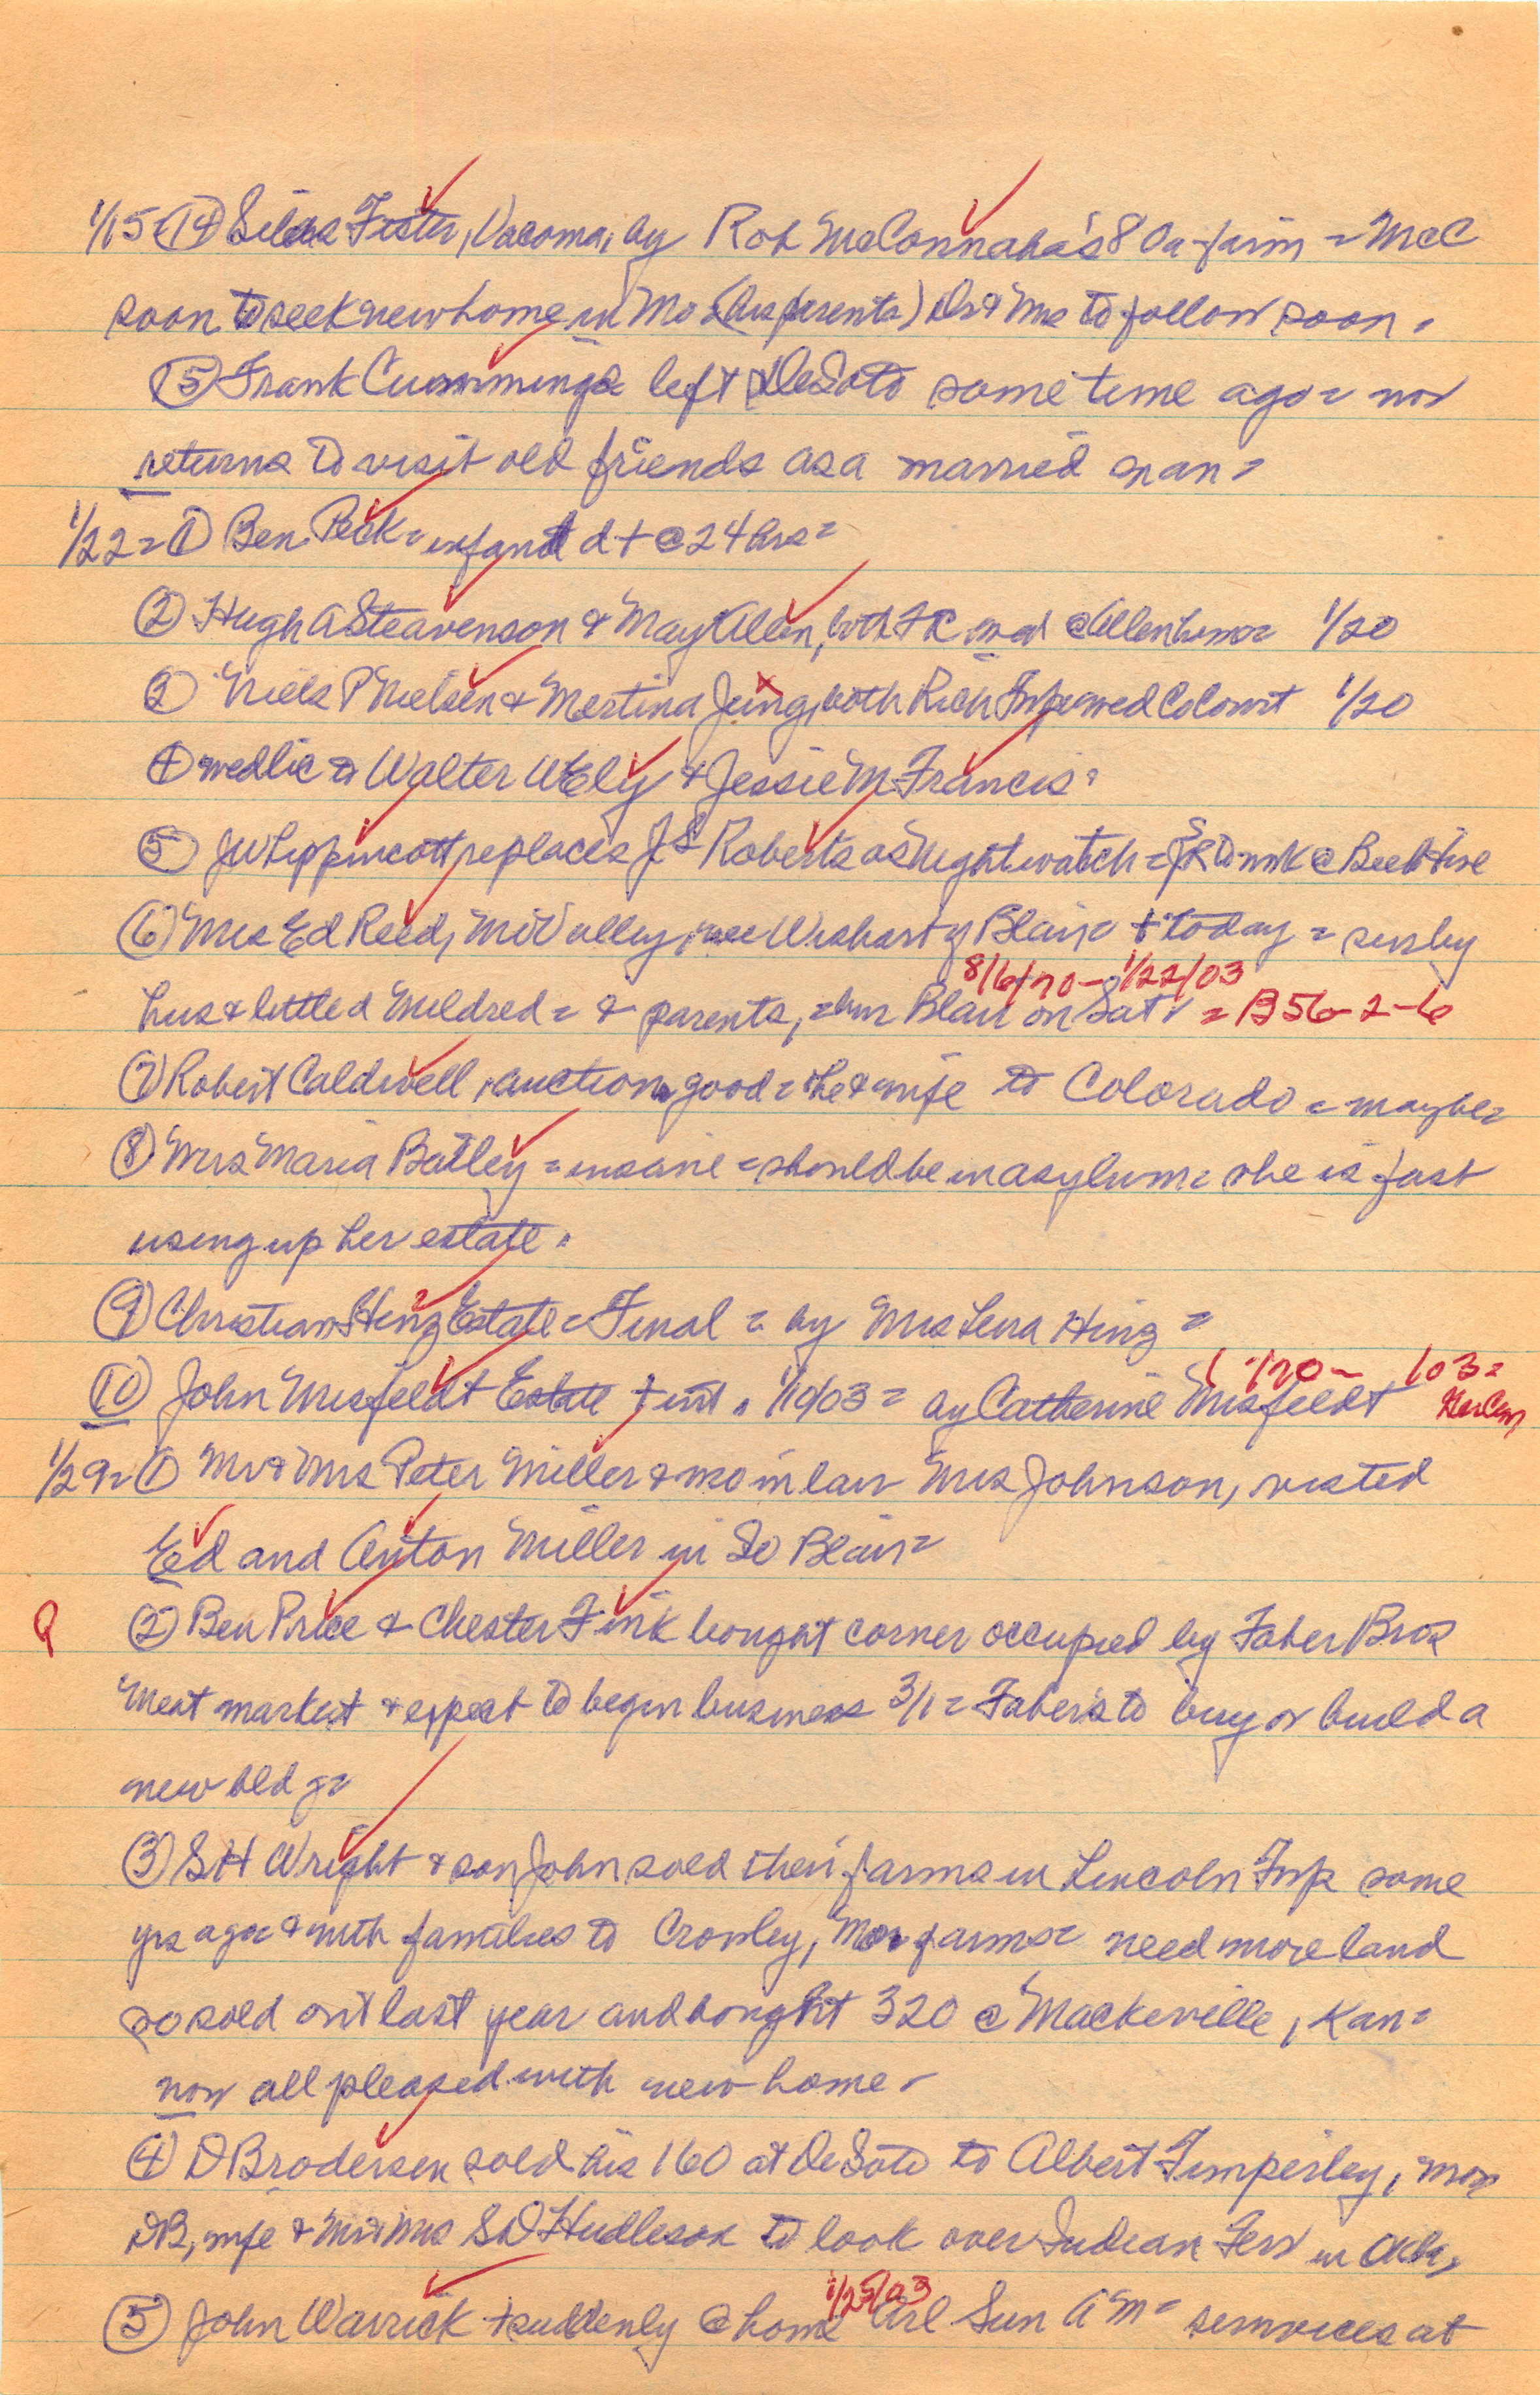 1/15 = (14) Silas Fister, Vacoma, by Rob McConnaha's 80a farm = McC
soon to seek new home in Mo & (his parents) Dr & Mrs to follow soon.
(15) Frank Cummings left DeSoto some time ago = now
returns to visit old friends as a married man =
1/22 = (1) Ben Peck = infant d + @ 24 hrs =
(2) Hugh A Steavenson & May Allen, both FC wed @ Allen home 1/20
(3) Niels P Nielsen & Mertina Jung, both Rich Twp = wed Co Court 1/20
(4) wed lic to Walter W Ely & Jessie M Francis =
(5) JW Lippincott replaces J S Roberts as Nightwatch = JSR to work @ Bee Hive
(6) Mrs Ed Reed, Mo Valley, nee Wishart of Blair + today = surs by
8/6/70 - 1/22/03
hus & little d Mildred = & parents, = bur Blair on Sat = B56-2-6
(7) Robert Caldwell, auction good = he & wife to Colorado = maybe =
(8) Mrs Maria Batley = insane = should be in asylum = she is fast
using up her estate.
(9) Christian Hinz Estate = Final = by Mrs Lena Hinz =
(10) John Misfeldt Estate + int. 1/10/03 = by Catherine Misfeldt
1/29 = (1) Mr & Mrs Peter Miller & mo in law Mrs Johnson, visted
Ed and Anton Miller in So Blair =
(2) Ben Price & Chester Fink bought corner occupied by Faber Bros
Meat market & expect to begin business 3/1 = Faber's to buy or build a
new bldg =
(3) S H Wright & son John sold their farms in Lincoln Twp some
yrs ago = & with families to Crowley, Mo = farms = need more land
so sold out last year and bought 320 @ Mackeville, Kan =
now all pleased with new home =
(4) D Brodersen sold his 160 at DeSoto to Albert Timperley, now
DB, wife & Mr & Mrs S D Hudleson to look over Indian Terr in Okla,
1/25/03
(5) John Warrick + suddenly @ home Arl Sun AM = servvices at